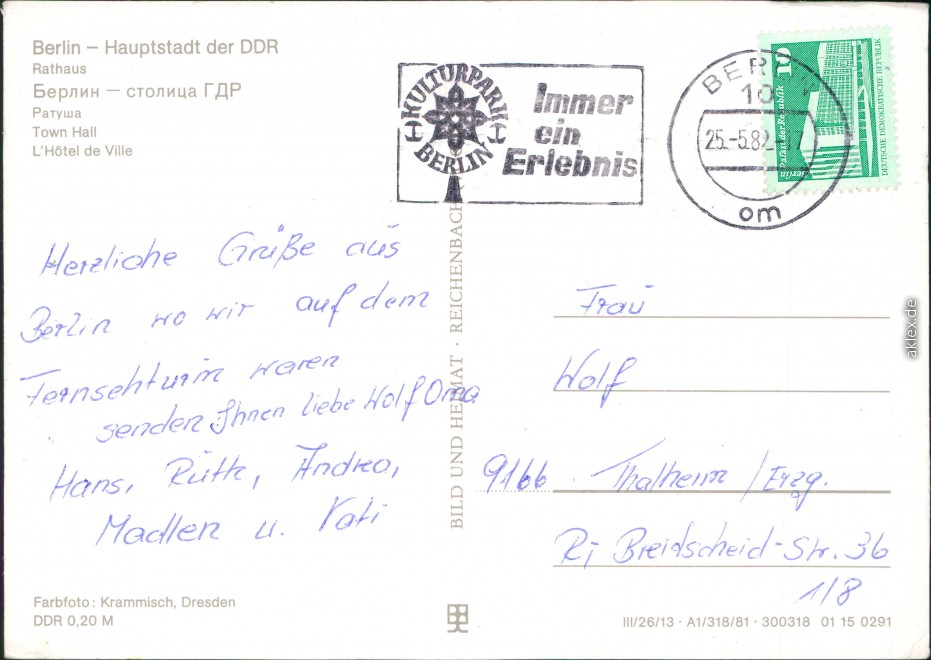 Berlin – Hauptstadt der DDR
Rathaus
Берлин – столица ГДР
Ратуша
Town Hall
L'Hôtel de Ville
KULTURPARK
BERLIN
Immer
ein
Erlebnis
BERLIN
10
25.-5.82.-17
om
10
Palast der Republik
Berlin
DEUTSCHE DEMOKRATISCHE REPUBLIK
Herzliche Grüße aus
Berlin wo wir auf dem
Fernsehturm waren
senden Ihnen liebe Wolf Oma
Hans, Ruth, Andrea,
Madlen u. Kati
BILD UND HEIMAT · REICHENBACH
Frau
Wolf
9166 Thalheim/Erzg.
R. Breidscheid-Str. 36
1/8
Farbfoto: Krammisch, Dresden
DDR 0,20 M
III/26/13 · A1/318/81 · 300318 01 15 0291
aklex.de